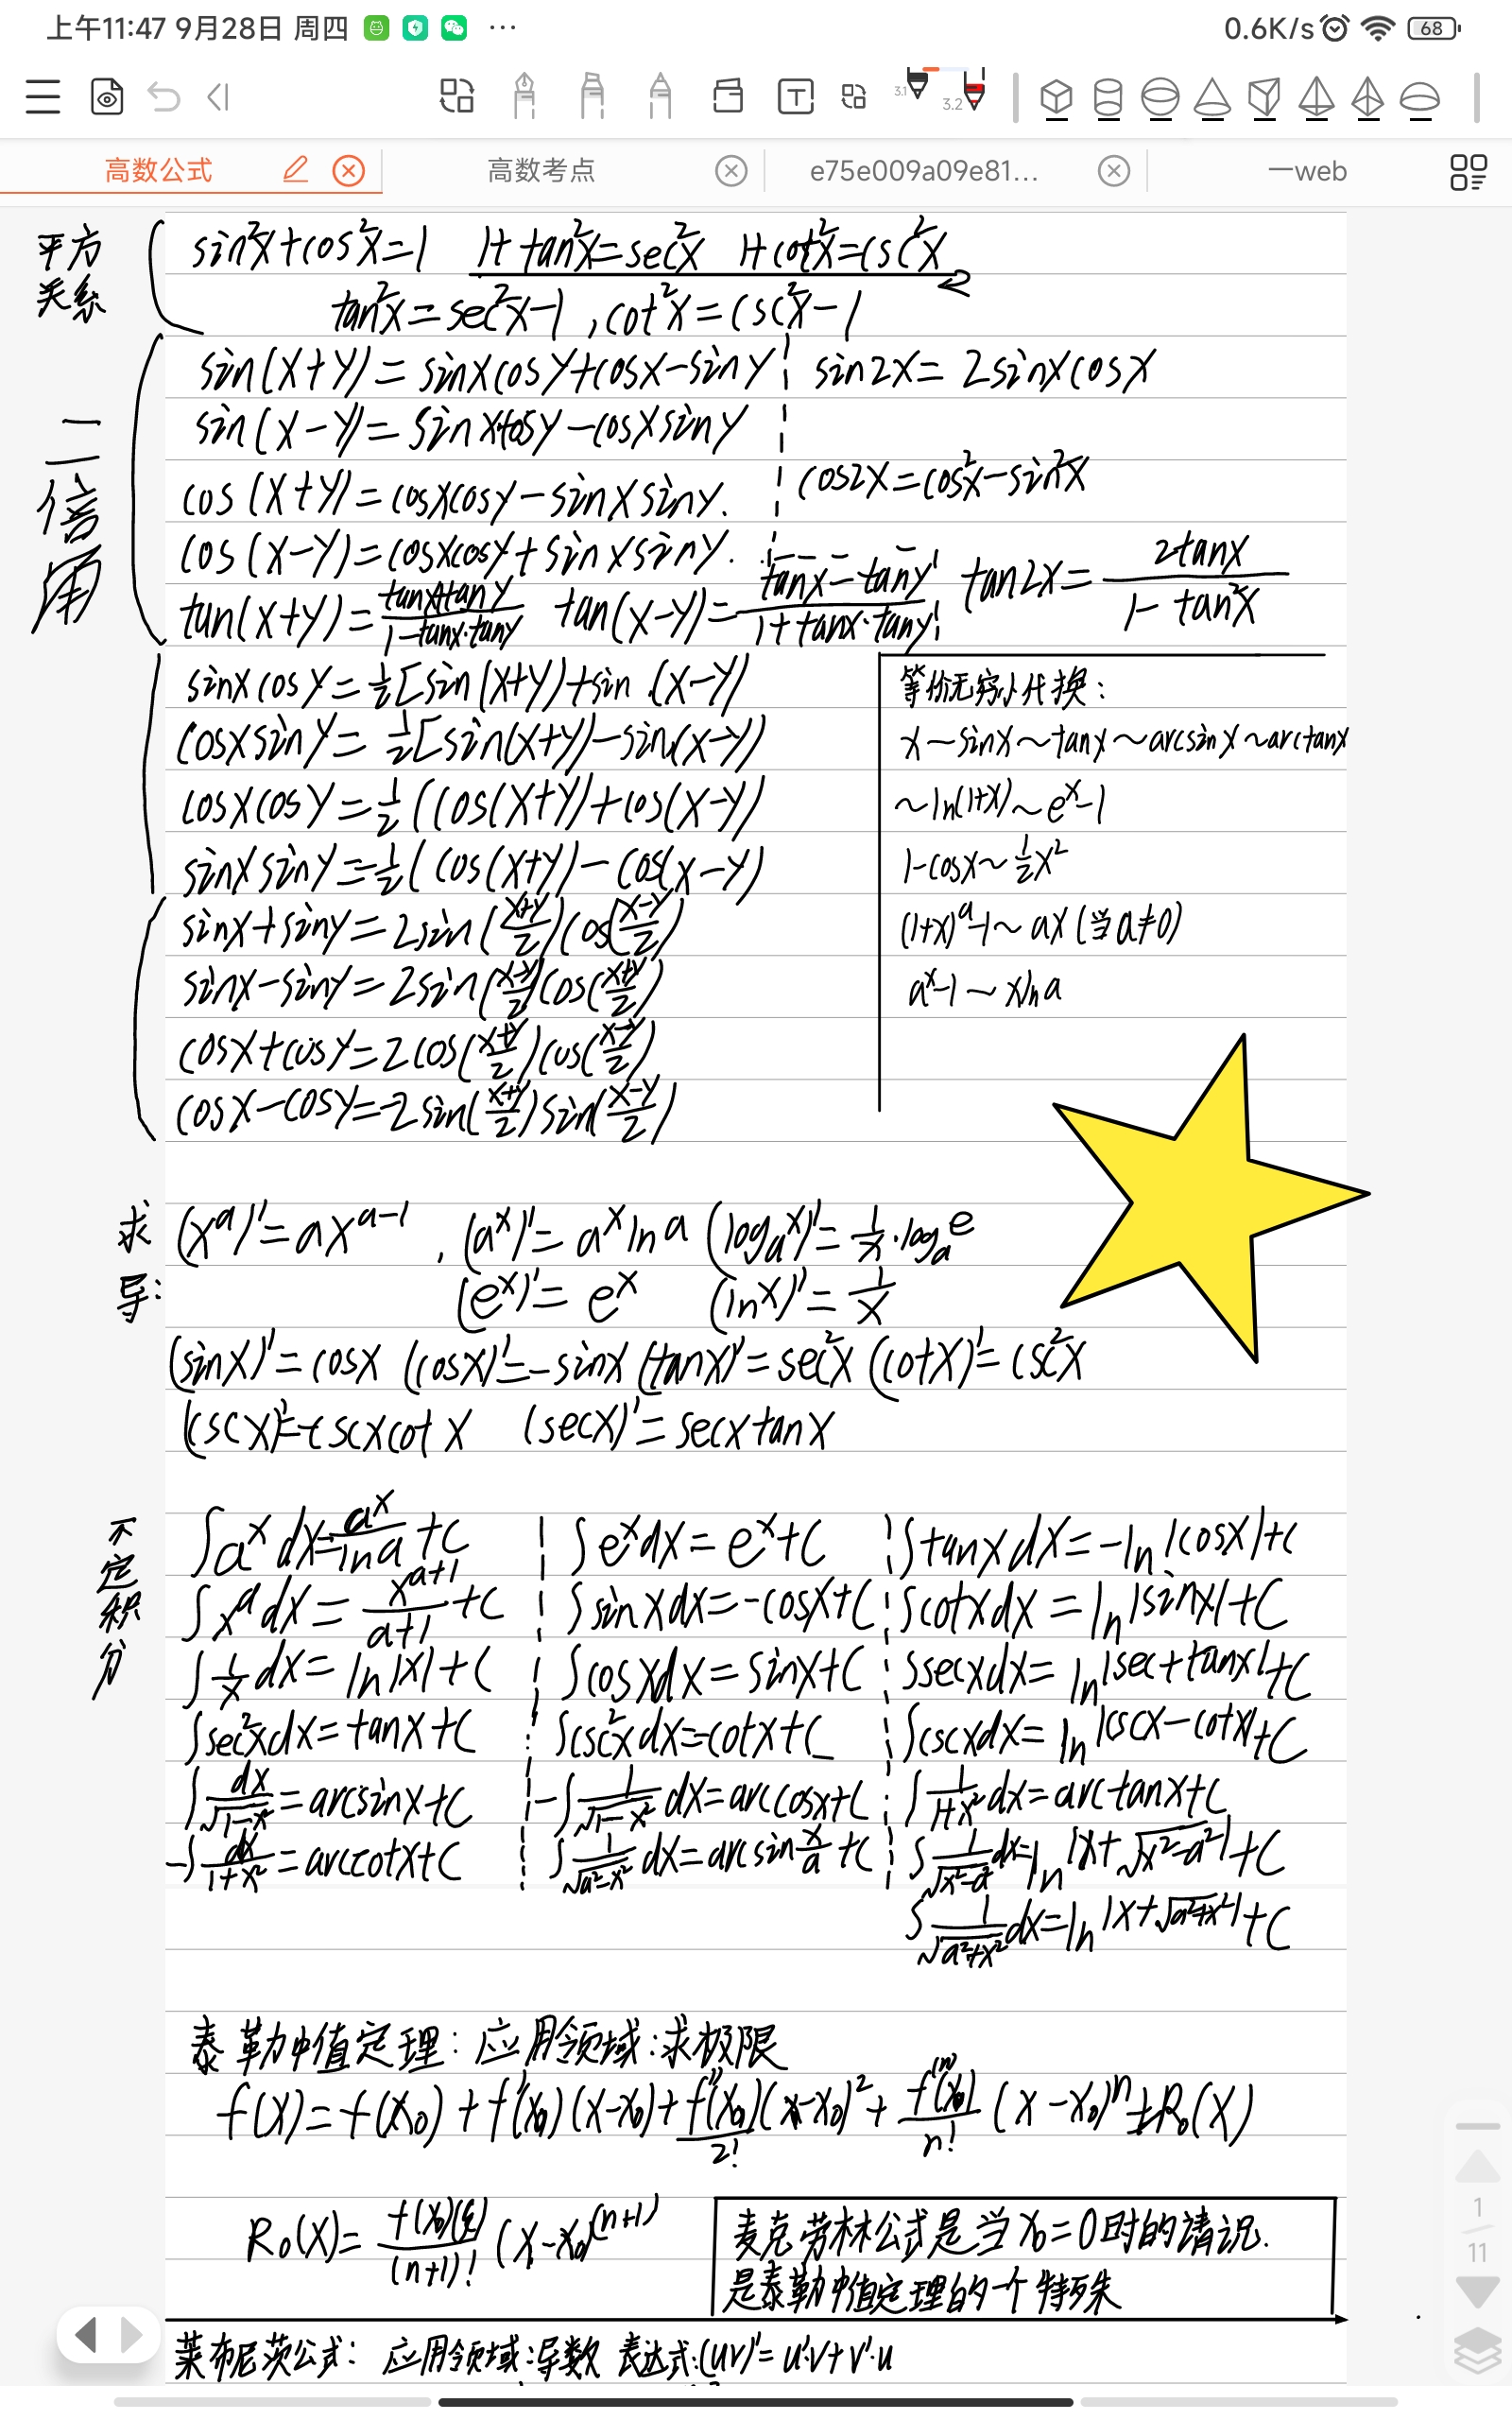 上午11:47 9月28日 周四 ··· 0.6K/s 68
3.1 3.2
高数公式 高数考点 e75e009a09e81... 一web
平方关系
sin²x+cos²x=1 1+tan²x=sec²x 1+cot²x=csc²x
tan²x=sec²x-1, cot²x=csc²x-1
二倍角
sin(x+y)=sinxcosy+cosx-siny sin2x=2sinxcosx
sin(x-y)=sinxcosy-cosxsiny
cos(x+y)=cosxcosy-sinxsiny. cos2x=cos²x-sin²x
cos(x-y)=cosxcosy+sinxsiny.
tan(x+y)=(tanx+tany)/(1-tanx·tany) tan(x-y)=(tanx-tany)/(1+tanx·tany) tan2x=2tanx/(1-tan²x)
sinxcosy=½[sin(x+y)+sin(x-y)
cosxsiny=½[sin(x+y)-sin(x-y))
cosxcosy=½(cos(x+y)+cos(x-y)
sinxsiny=½(cos(x+y)-cos(x-y)
sinx+siny=2sin((x+y)/2)cos((x-y)/2)
sinx-siny=2sin((x-y)/2)cos((x+y)/2)
cosx+cosy=2cos((x+y)/2)cos((x-y)/2)
cosx-cosy=-2sin((x+y)/2)sin((x-y)/2)
等价无穷小代换:
x~sinx~tanx~arcsinx~arctanx
~ln(1+x)~eˣ-1
1-cosx~½x²
(1+x)ᵃ-1~ax(当a≠0)
aˣ-1~xlna
求导:
(xᵃ)'=axᵃ⁻¹, (aˣ)'=aˣlna (logₐx)'=1/x·logₐe
(eˣ)'=eˣ (lnx)'=1/x
(sinx)'=cosx (cosx)'=-sinx (tanx)'=sec²x (cotx)'=csc²x
(cscx)'=-cscxcotx (secx)'=secxtanx
不定积分
∫aˣdx=aˣ/lna+C ∫eˣdx=eˣ+C ∫tanxdx=-ln|cosx|+C
∫xᵃdx=xᵃ⁺¹/(a+1)+C ∫sinxdx=-cosx+C ∫cotxdx=ln|sinx|+C
∫1/x dx=ln|x|+C ∫cosxdx=sinx+C ∫secxdx=ln|sec+tanx|+C
∫sec²xdx=tanx+C ∫csc²xdx=-cotx+C ∫cscxdx=ln|cscx-cotx|+C
∫dx/√(1-x²)=arcsinx+C -∫1/√(1-x²)dx=arccosx+C ∫1/(1+x²)dx=arctanx+C
-∫dx/(1+x²)=arccotx+C ∫1/√(a²-x²)dx=arcsin x/a+C ∫1/√(x²-a²)dx=ln|x+√(x²-a²)|+C
∫1/√(a²+x²)dx=ln|x+√(a²+x²)|+C
泰勒中值定理:应用领域:求极限
f(x)=f(x₀)+f'(x₀)(x-x₀)+f''(x₀)/2!(x-x₀)²+f⁽ⁿ⁾(x₀)/n!(x-x₀)ⁿ+R₀(x)
R₀(x)=f(x₀)(ξ)/(n+1)!(x-x₀)⁽ⁿ⁺¹⁾
麦克劳林公式是当x₀=0时的请况.
是泰勒中值定理的一个特殊
1
11
莱布尼茨公式: 应用领域:导数 表达式:(uv)'=u'·v+v'·u